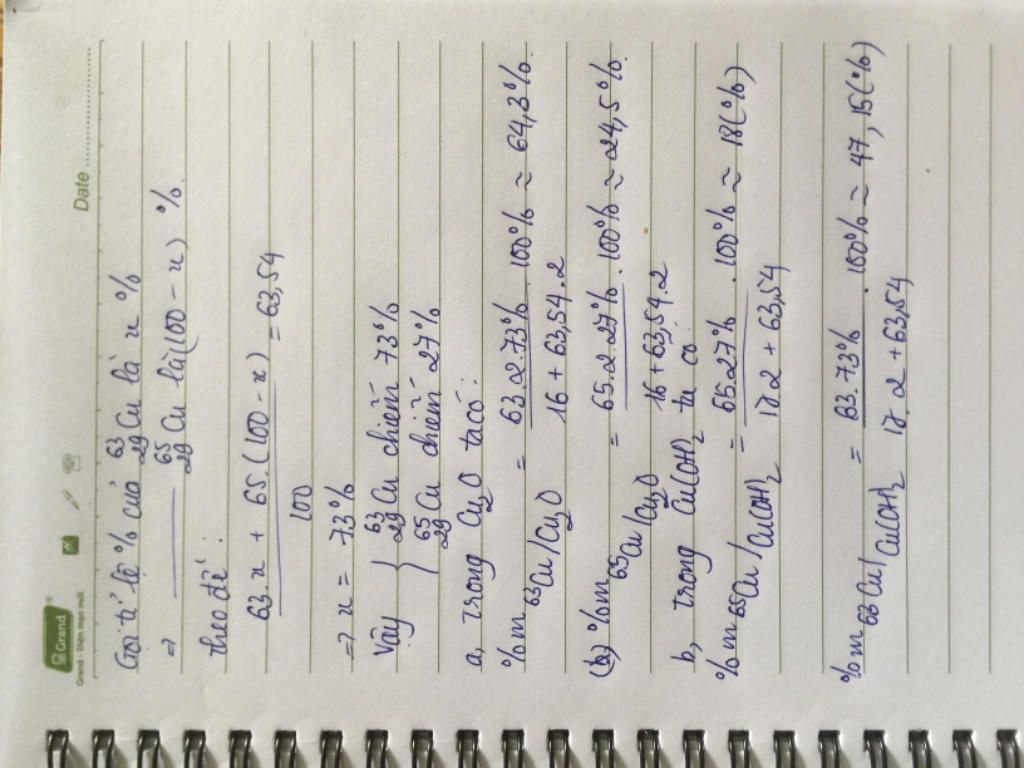 Grand
Grand - Diện mạo mới
Date
Gọi tỉ lệ % của ⁶³₂₉Cu là x %
⇒ ——— ⁶⁵₂₉Cu là (100 - x) %.
theo đề :
63.x + 65.(100 - x) / 100 = 63,54
=> x = 73%
Vậy { ⁶³₂₉Cu chiếm 73%
⁶⁵₂₉Cu chiếm 27%
a, trong Cu₂O ta có:
%m ⁶³Cu/Cu₂O = 63.2.73% / 16 + 63,54.2 . 100% ≈ 64,3%.
(b) %m ⁶⁵Cu/Cu₂O = 65.2.27% / 16 + 63,54.2 . 100% ≈ 24,5%.
b, trong Cu(OH)₂ ta có
%m ⁶⁵Cu/Cu(OH)₂ = 65.27% / 17.2 + 63,54 . 100% ≈ 18(%)
%m ⁶³Cu/Cu(OH)₂ = 63.73% / 17.2 + 63,54 . 100% ≈ 47,15(%)